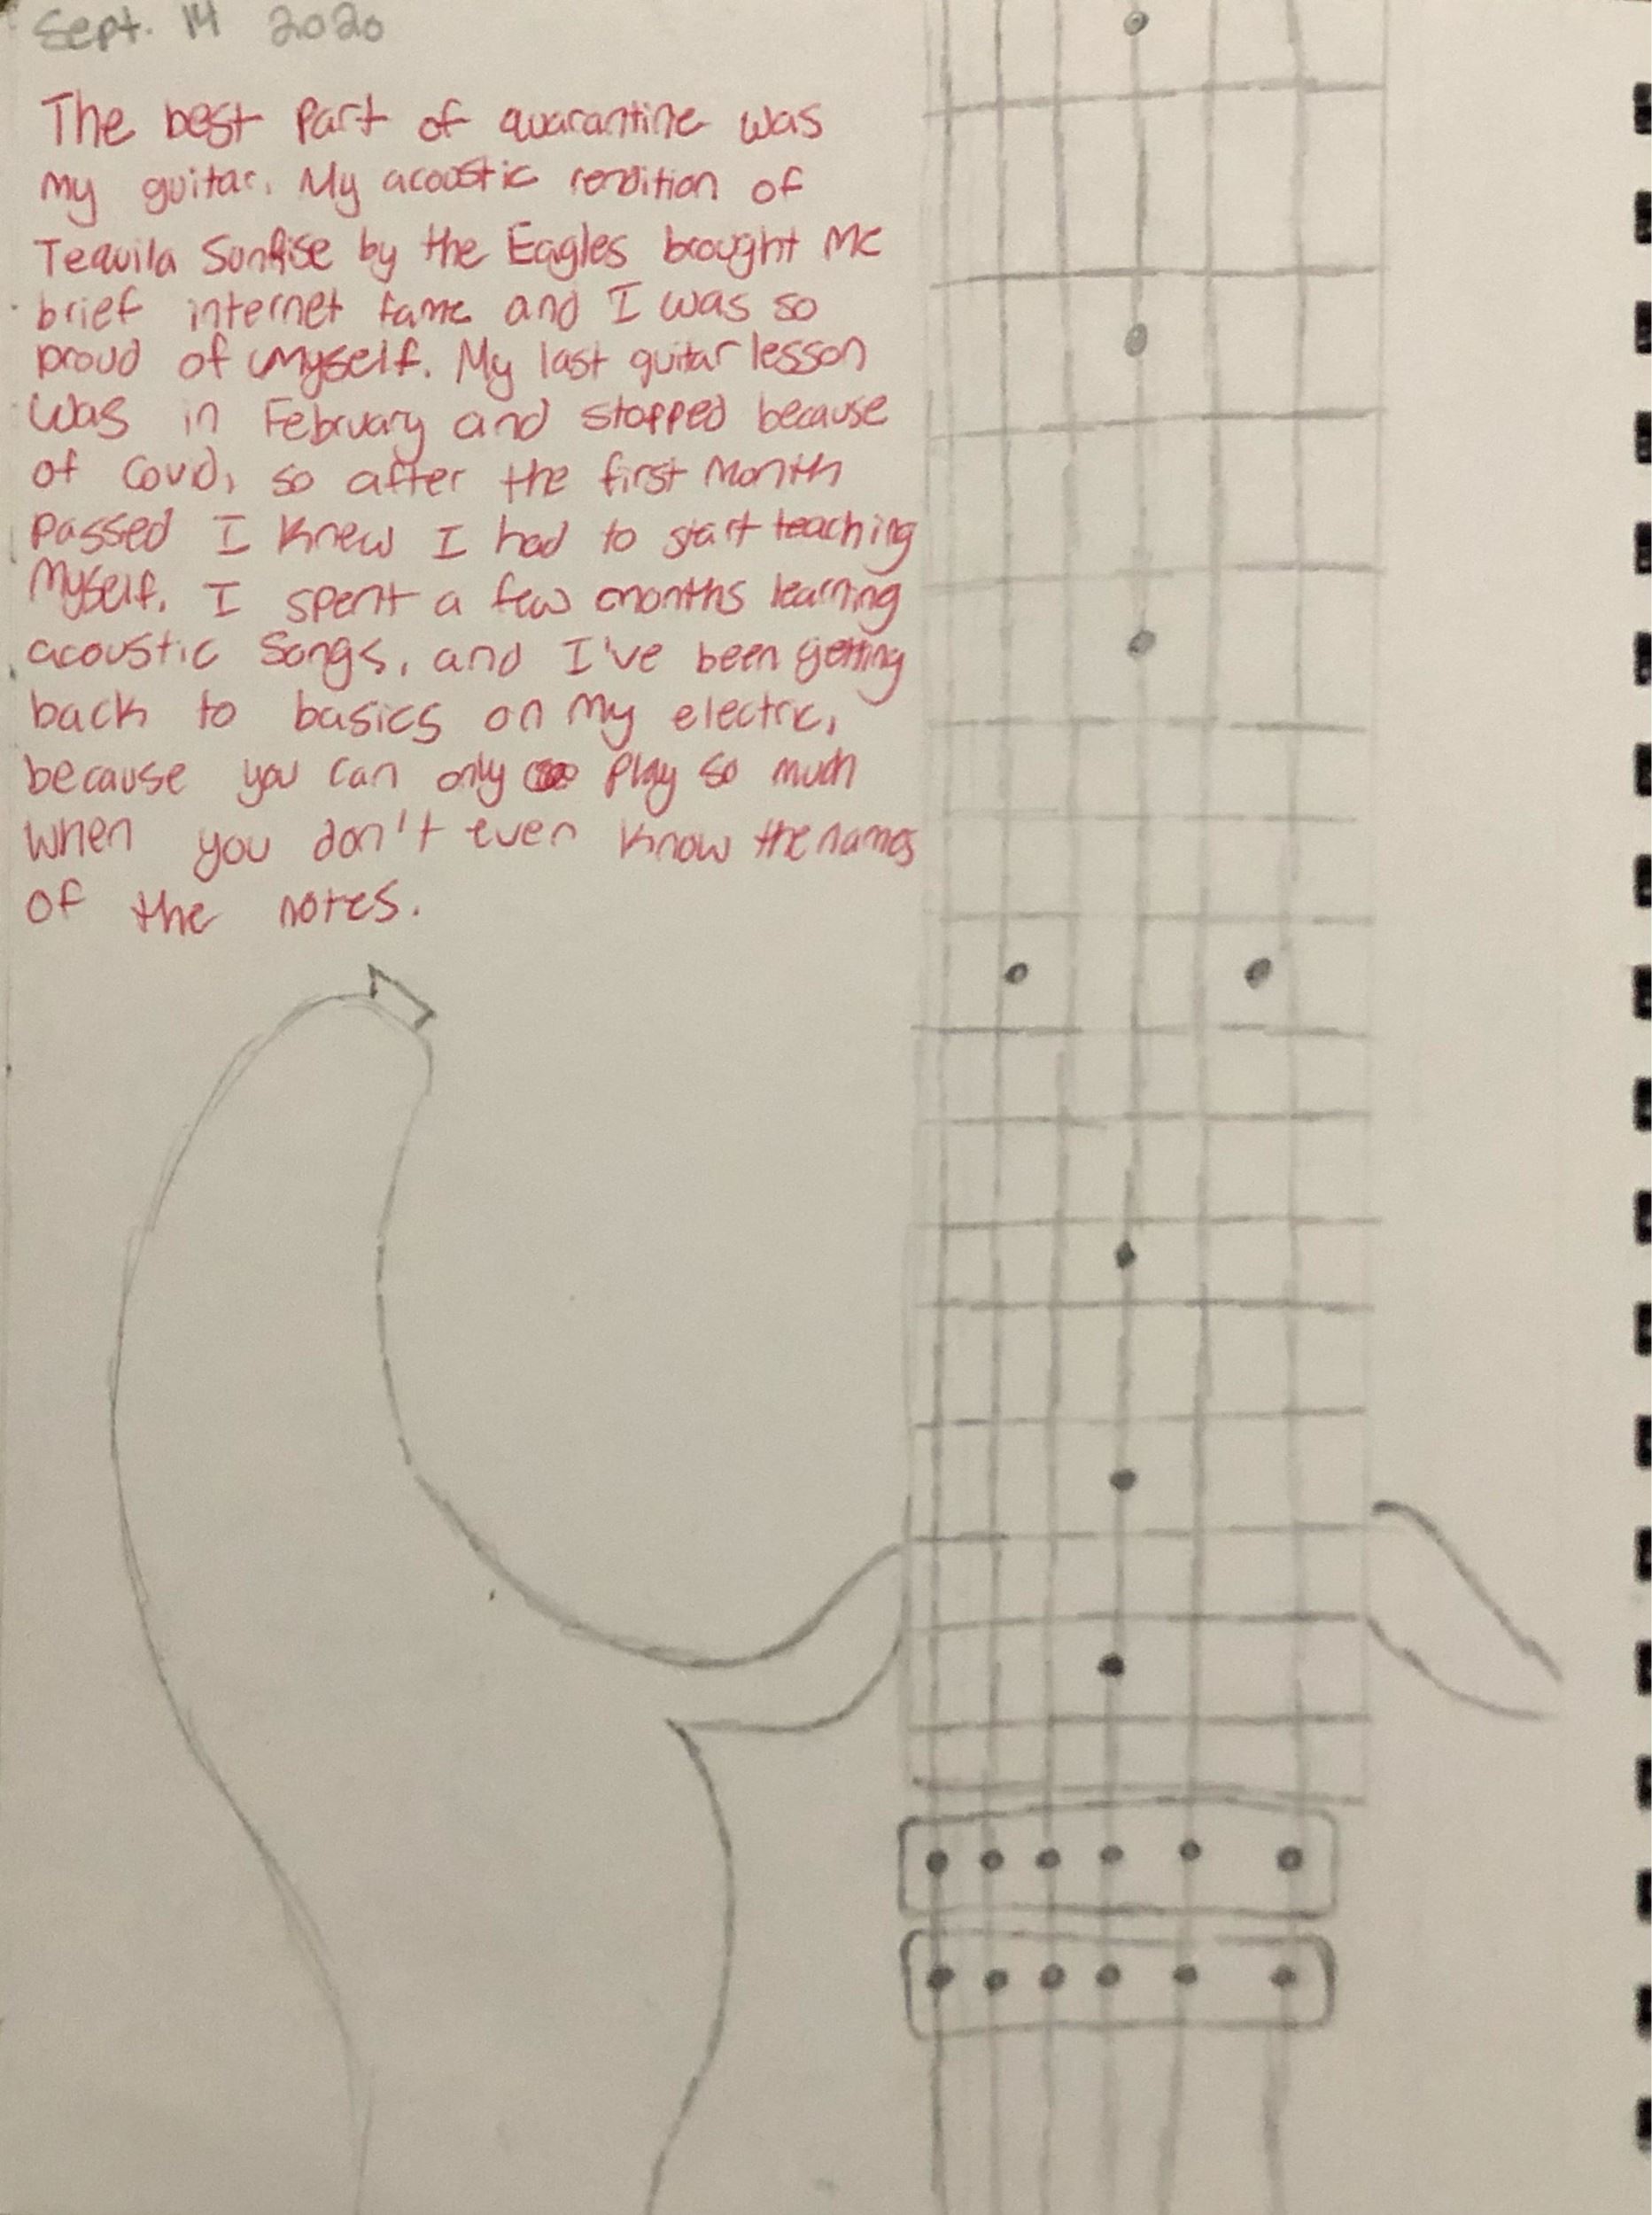 Sept. 14 2020
The best part of quarantine was
my guitar. My acoustic rendition of
Tequila Sunrise by the Eagles brought me
brief internet fame and I was so
proud of myself. My last guitar lesson
was in February and stopped because
of Covid, so after the first month
passed I knew I had to start teaching
myself. I spent a few months learning
acoustic songs, and I've been getting
back to basics on my electric,
because you can only play so much
when you don't even know the names
of the notes.